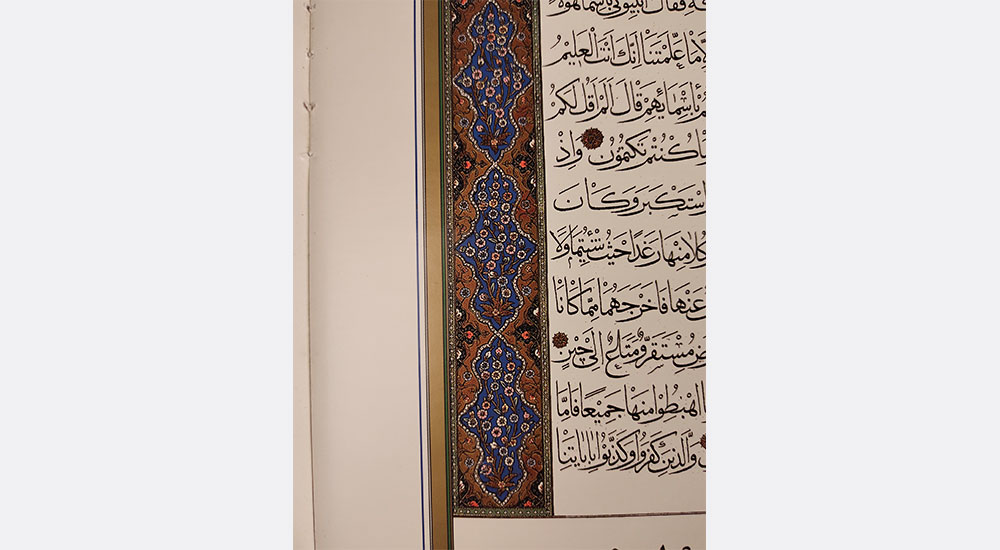 فقال انبئوني باسماء هؤلاء
مَا عَلَّمْتَنَا اِنَّكَ اَنْتَ الْعَلِيمُ
بِاَسْمَائِهِمْ قَالَ اَلَمْ اَقُلْ لَكُمْ
كُنْتُمْ تَكْتُمُونَ وَاِذْ
اسْتَكْبَرَ وَكَانَ
كُلَا مِنْهَا رَغَدًا حَيْثُ شِئْتُمَا وَلَا
عَنْهَا فَاَخْرَجَهُمَا مِمَّا كَانَا
مُسْتَقَرٌّ وَمَتَاعٌ اِلَى حِينٍ
اهْبِطُوا مِنْهَا جَمِيعًا فَاِمَّا
وَالَّذِينَ كَفَرُوا وَكَذَّبُوا بِاٰيَاتِنَا